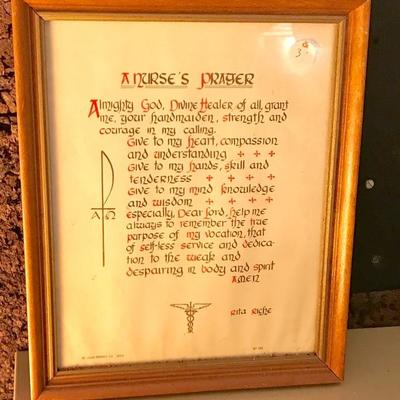 3.
A NURSE'S PRAYER
Almighty God, Divine Healer of all, grant
me, your handmaiden, strength and
courage in my calling.
Give to my heart, compassion
and understanding + + +
Give to my hands, skill and
tenderness + + + +
Give to my mind knowledge
and wisdom + + + +
Especially, Dear Lord, help me
always to remember the true
purpose of my vocation, that
of self-less service and dedica-
tion to the weak and
despairing in body and spirit
Amen
Α Ω
Rita Riche